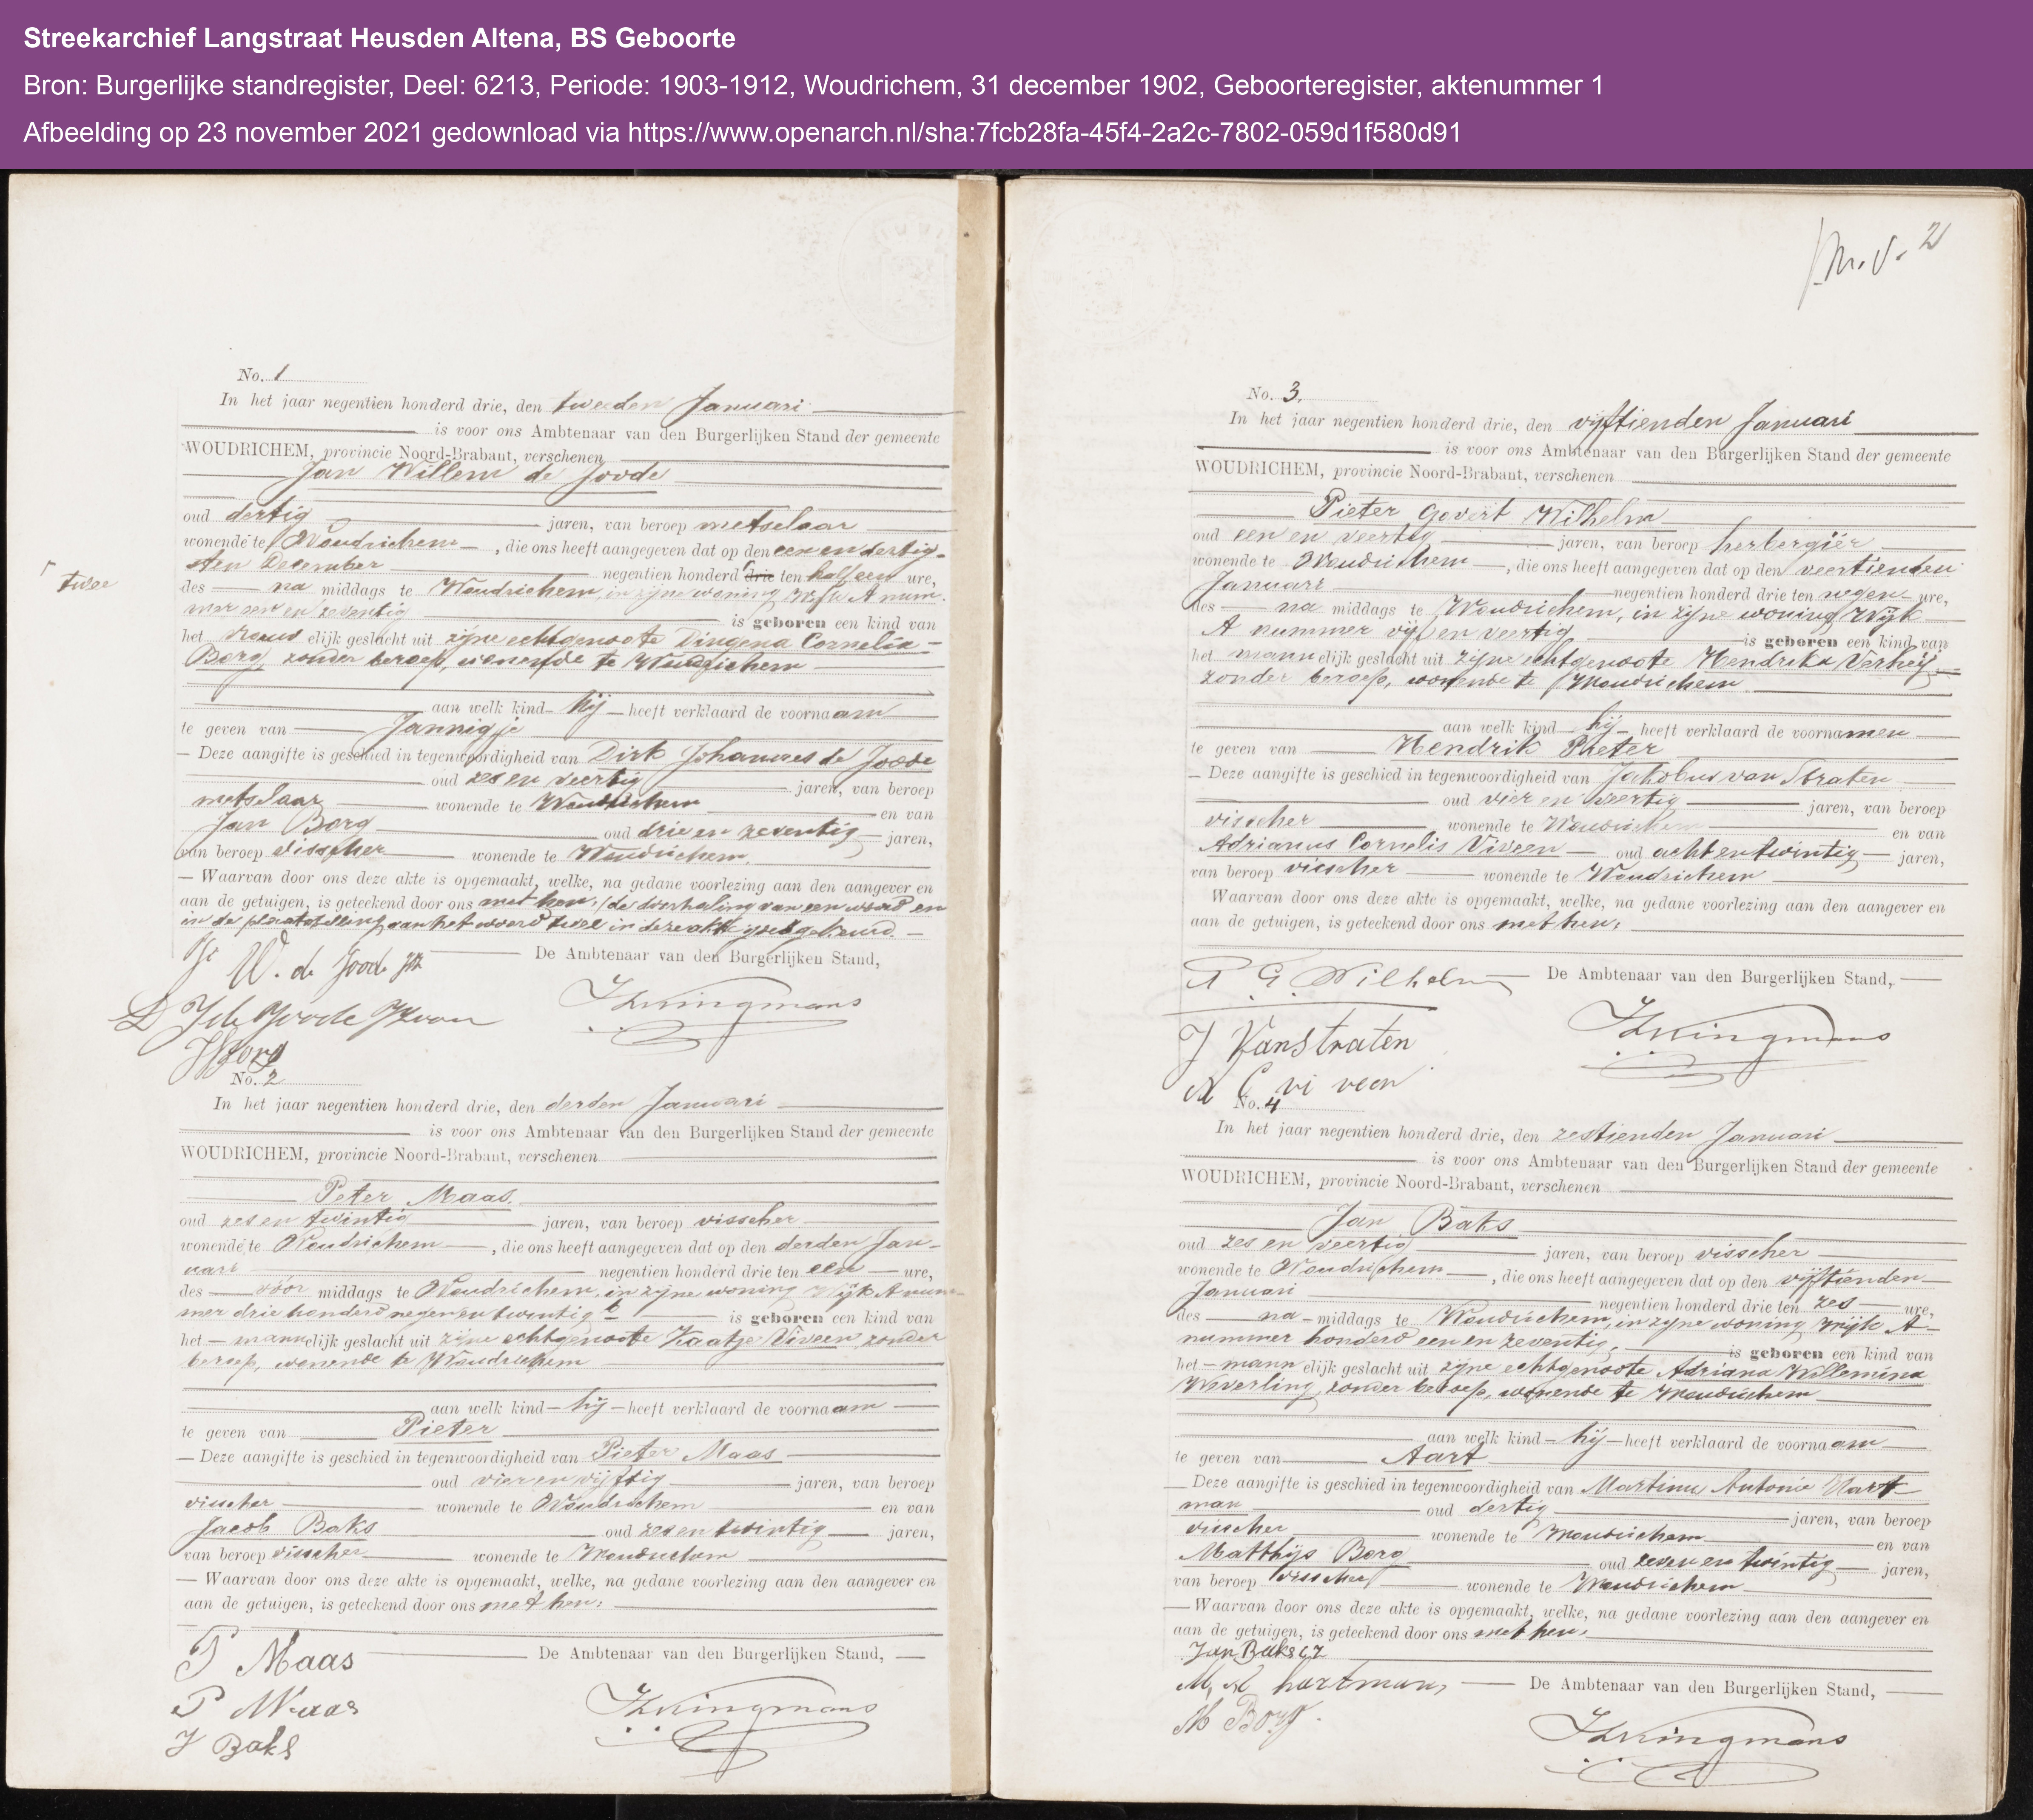 Streekarchief Langstraat Heusden Altena, BS Geboorte
Bron: Burgerlijke standregister, Deel: 6213, Periode: 1903-1912, Woudrichem, 31 december 1902, Geboorteregister, aktenummer 1
Afbeelding op 23 november 2021 gedownload via https://www.openarch.nl/sha:7fcb28fa-45f4-2a2c-7802-059d1f580d91
No. 1
In het jaar negentien honderd drie, den tweeden Januari
is voor ons Ambtenaar van den Burgerlijken Stand der gemeente
WOUDRICHEM, provincie Noord-Brabant, verschenen
Jan Willem de Joode
oud dertig jaren, van beroep metselaar
wonende te Woudrichem, die ons heeft aangegeven dat op den een en dertig-
sten December negentien honderd drie ten half een ure,
twee
des na middags te Woudrichem, in zijne woning Wijk A num-
mer een en zeventig is geboren een kind van
het vrouwelijk geslacht uit zijne echtgenoote Dingena Cornelia
Borg, zonder beroep, wonende te Woudrichem
aan welk kind hij heeft verklaard de voornaam
te geven van Jannigje
Deze aangifte is geschied in tegenwoordigheid van Dirk Johannes de Joode
oud zes en veertig jaren, van beroep
metselaar wonende te Woudrichem en van
Jan Borg oud drie en zeventig jaren,
van beroep visscher wonende te Woudrichem.
Waarvan door ons deze akte is opgemaakt, welke, na gedane voorlezing aan den aangever en
aan de getuigen, is geteekend door ons met hen, de doorhaling van een woord en
in de plaatstelling van het woord twee in deze akte goedgekeurd.
W. de Joode
De Ambtenaar van den Burgerlijken Stand,
D J de Joode Jzoon
J Borg
No. 2
In het jaar negentien honderd drie, den derden Januari
is voor ons Ambtenaar van den Burgerlijken Stand der gemeente
WOUDRICHEM, provincie Noord-Brabant, verschenen
Peter Maas
oud zes en twintig jaren, van beroep visscher
wonende te Woudrichem, die ons heeft aangegeven dat op den derden Jan-
uari negentien honderd drie ten een ure,
des voor middags te Woudrichem, in zijne woning Wijk A num-
mer drie honderd negen en twintig b is geboren een kind van
het mannelijk geslacht uit zijne echtgenoote Kaatje Viveen, zonder
beroep, wonende te Woudrichem
aan welk kind hij heeft verklaard de voornaam
te geven van Pieter
Deze aangifte is geschied in tegenwoordigheid van Pieter Maas
oud vier en vijftig jaren, van beroep
visscher wonende te Woudrichem en van
Jacob Baks oud zes en twintig jaren,
van beroep visscher wonende te Woudrichem
Waarvan door ons deze akte is opgemaakt, welke, na gedane voorlezing aan den aangever en
aan de getuigen, is geteekend door ons met hen,
P Maas
De Ambtenaar van den Burgerlijken Stand,
P Maas
J Baks
2
No. 3.
In het jaar negentien honderd drie, den vijftienden Januari
is voor ons Ambtenaar van den Burgerlijken Stand der gemeente
WOUDRICHEM, provincie Noord-Brabant, verschenen
Pieter Govert Wilhelm
oud een en veertig jaren, van beroep herbergier
wonende te Woudrichem, die ons heeft aangegeven dat op den veertienden
Januari negentien honderd drie ten negen ure,
des na middags te Woudrichem, in zijne woning Wijk
A nummer vijf en veertig is geboren een kind van
het mannelijk geslacht uit zijne echtgenoote Hendrika Verheij,
zonder beroep, wonende te Woudrichem
aan welk kind hij heeft verklaard de voornamen
te geven van Hendrik Pieter
Deze aangifte is geschied in tegenwoordigheid van Jakobus van Straten
oud vier en veertig jaren, van beroep
visscher wonende te Woudrichem en van
Adrianus Cornelis Viveen oud acht en twintig jaren,
van beroep visscher wonende te Woudrichem
Waarvan door ons deze akte is opgemaakt, welke, na gedane voorlezing aan den aangever en
aan de getuigen, is geteekend door ons met hen,
P G Wilhelm
De Ambtenaar van den Burgerlijken Stand,
J Vanstraten
A C vi veen
No. 4
In het jaar negentien honderd drie, den zestienden Januari
is voor ons Ambtenaar van den Burgerlijken Stand der gemeente
WOUDRICHEM, provincie Noord-Brabant, verschenen
Jan Baks
oud zes en veertig jaren, van beroep visscher
wonende te Woudrichem, die ons heeft aangegeven dat op den vijftienden
Januari negentien honderd drie ten zes ure,
des na middags te Woudrichem, in zijne woning Wijk A
nummer honderd een en zeventig, is geboren een kind van
het mannelijk geslacht uit zijne echtgenoote Adriana Willemina
Weverling, zonder beroep, wonende te Woudrichem
aan welk kind hij heeft verklaard de voornaam
te geven van Aart
Deze aangifte is geschied in tegenwoordigheid van Martinus Antonie Hart-
man oud dertig jaren, van beroep
visscher wonende te Woudrichem en van
Matthijs Borg oud zeven en twintig jaren,
van beroep visscher wonende te Woudrichem
Waarvan door ons deze akte is opgemaakt, welke, na gedane voorlezing aan den aangever en
aan de getuigen, is geteekend door ons met hen,
Jan Baks
M, A hartman,
De Ambtenaar van den Burgerlijken Stand,
M Borg